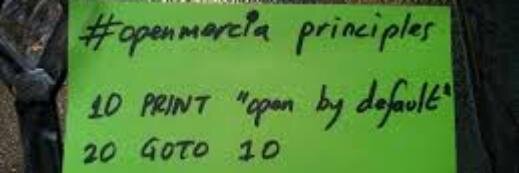 #openmercia principles
10 PRINT "open by default"
20 GOTO 10